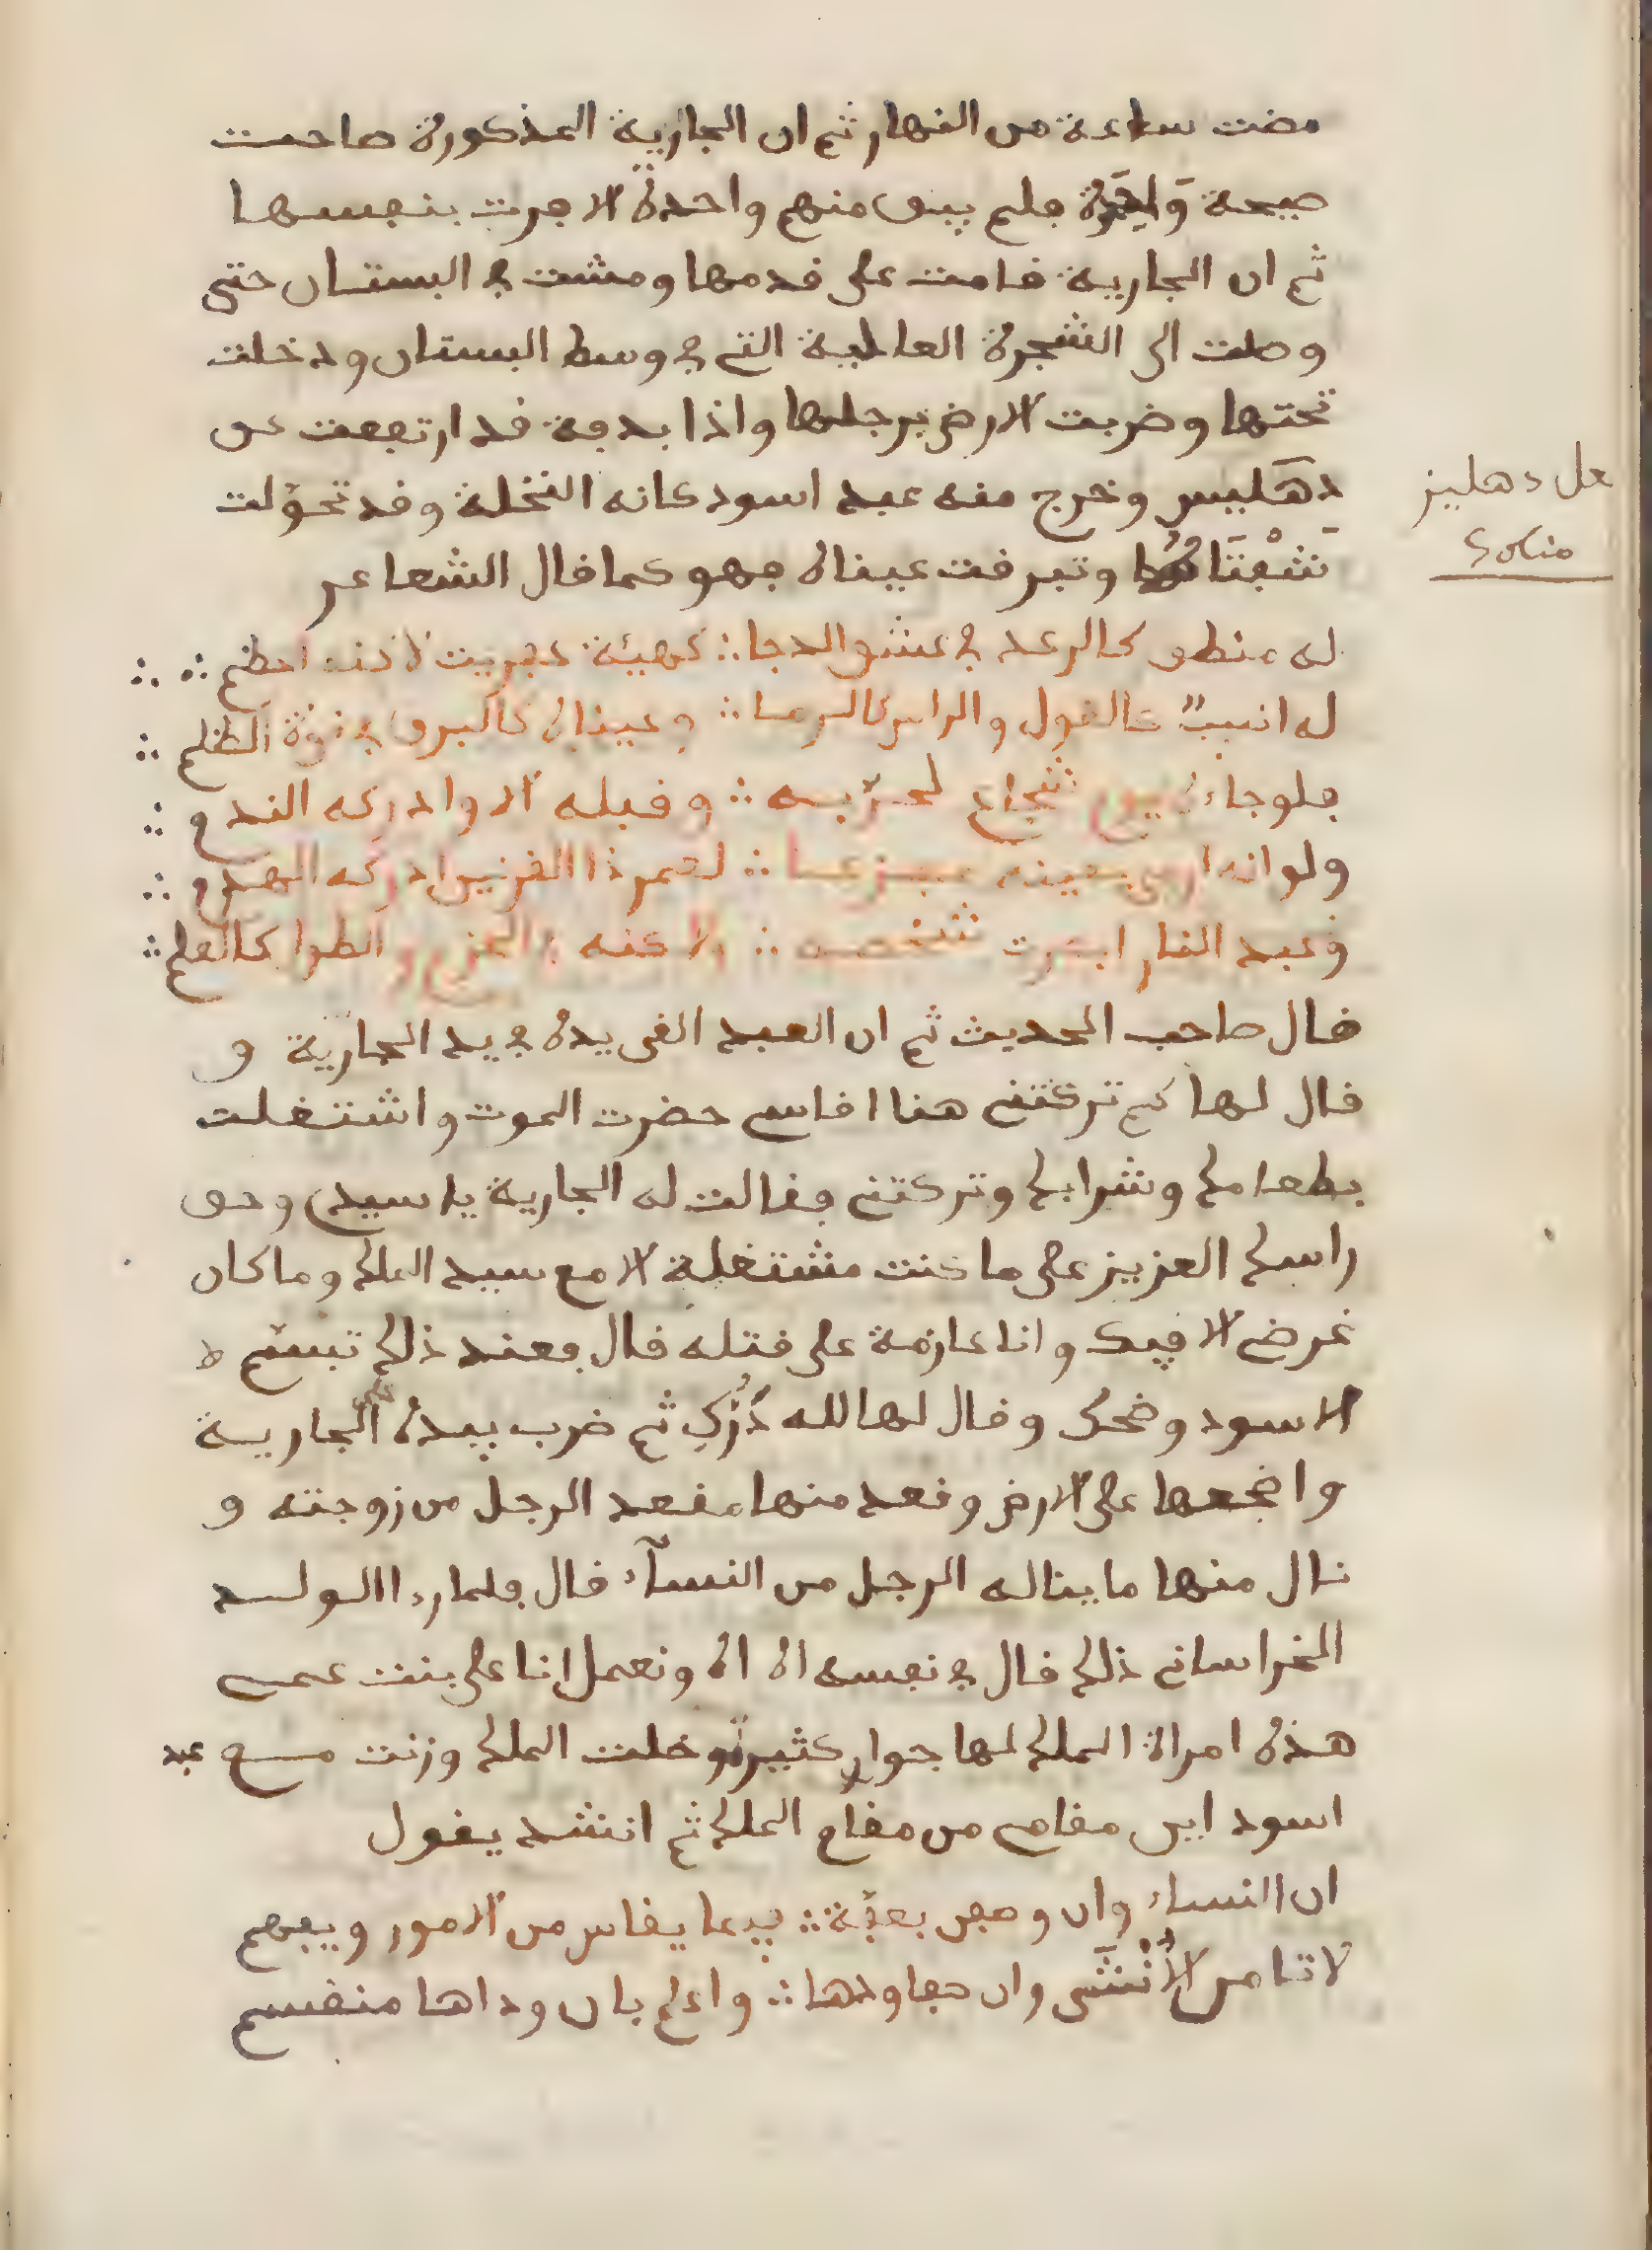 مضت ساعة من النهار ثم ان الجارية المذكورة صاحت
صيحة وَاحِدَة فلم يبق منهم واحدة الا جرت بنفسها
ثم ان الجارية قامت على قدمها ومشت في البستان حتى
وصلت الى الشجرة العالية التي في وسط البستان ودخلت
تحتها وضربت الارض برجلها واذا بدفة قد ارتفعت عن
دهليس وخرج منه عبد اسود كانه النخلة وقد تحوّلت
شَفْتَاهُ وتبرقت عيناه فهو كما قال الشاعر
له منطق كالرعد في غشو الدجا ∴ كهيئة عفريت لاكنه اعظم ∴
له انيب كالغول والراس كالرحا ∴ وعيناه كالبرق في الظلم ∴
فلو جاء شجاع لحرّبه ∴ وقبله الا وادركه الندم ∴
ولو انه بعينه ∴ لعمر ذا القرنين ادركه الهدم ∴
وعبد النار ابصرت شخصه ∴ لاكنه في كالعلم ∴
قال صاحب الحديث ثم ان العبد القى يده في يد الجارية و
قال لها كم تركتني هنا اقاسي حضرت الموت واشتغلت
بطعامك وشرابك وتركتني فقالت له الجارية يا سيدي وحق
راسك العزيز علي ما كنت مشتغلة الا مع سيد الملك وما كان
غرضي الا فيك وانا عازمة على قتله قال فعند ذلك تبسّم
الاسود وضحك وقال لها لله دُرُّكِ ثم ضرب بيده على الجارية
واضجعها على الارض وقعد منها مقعد الرجل من زوجته و
نال منها ما يناله الرجل من النسآء قال فلما رءا الولد
الخراساني ذلك قال في نفسه اه اه ونعمل انا على بنت عمي
هذه امراة الملك لها جوار كثيرة وخلت الملك وزنت مع عبد
اسود اين مقامي من مقام الملك ثم انشد يقول
ان النساء وان وصفن بعفّة ∴ فيما يقاس من الامور ويفهم
لا تامن الأُنْثَى وان ∴ واعلم بان وداها منقسم
لعل دهليز
منه